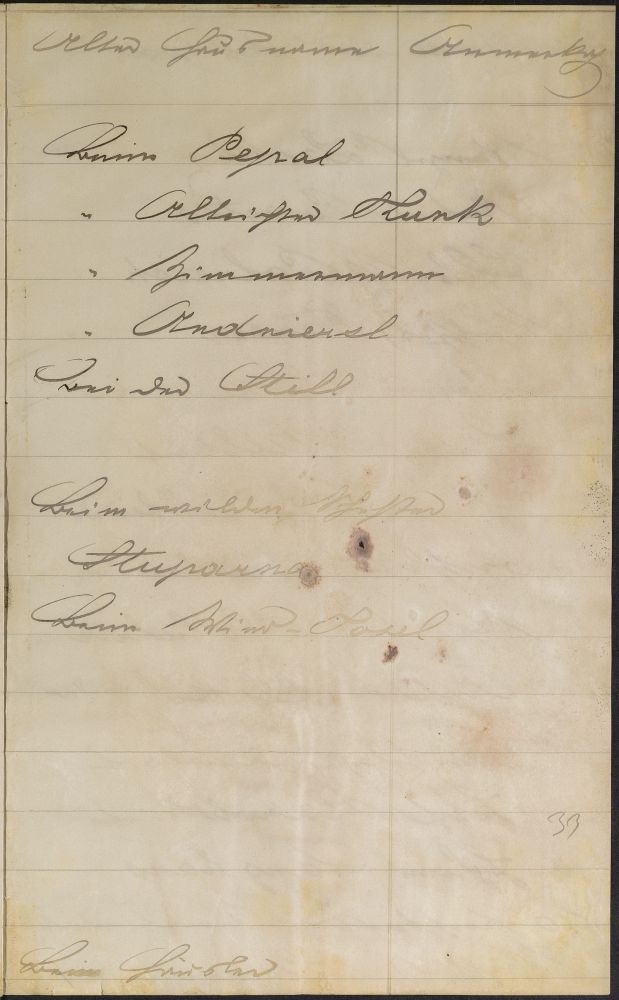 Alter Hausname Anmerkg
Beim Pepal
" Altrichter Kunk
" Zimmermann
" Andreiersl
bei der Still
Beim wilden Schuster
Stuparna
Beim Wind-Josel
39
Beim Häusler